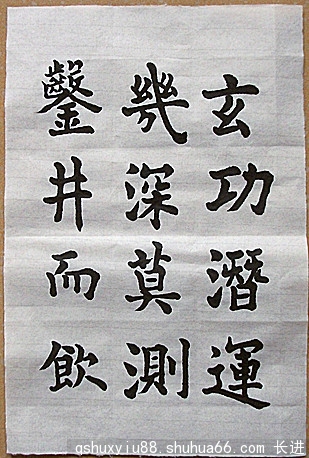 玄功潛運
幾深莫測
鑿井而飲
gshuxyiu88.shuhua66.com 长进